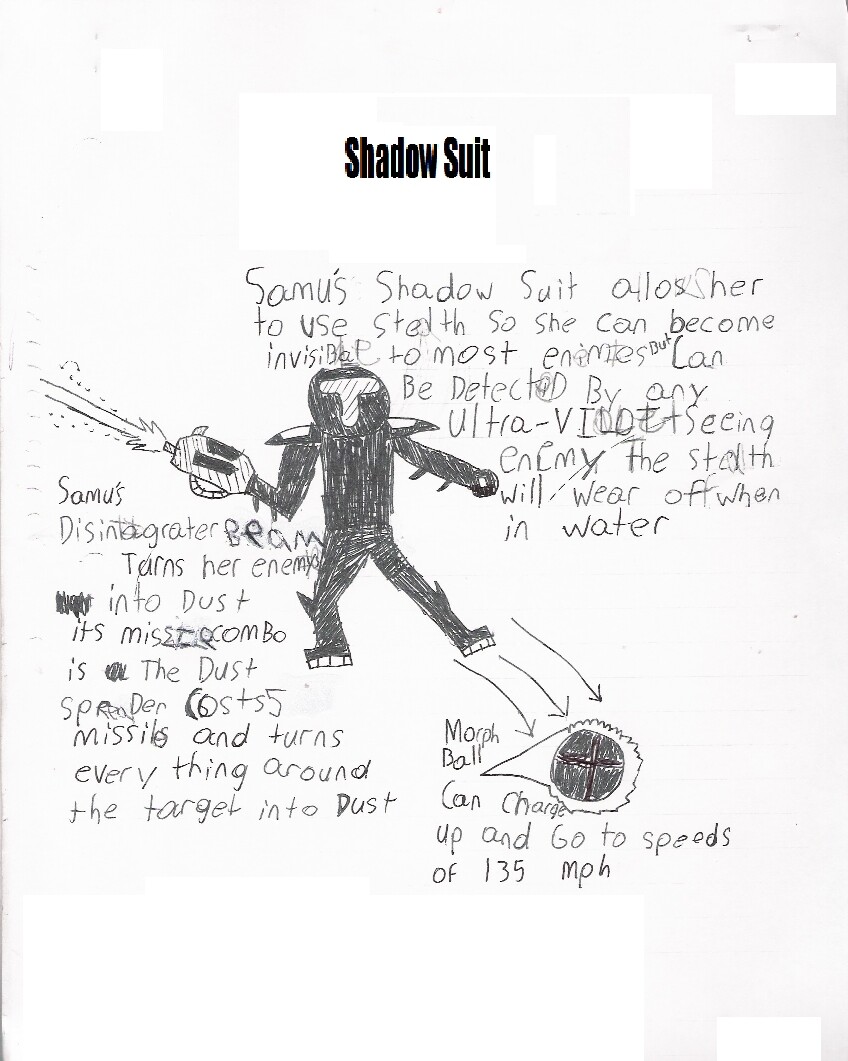 Shadow Suit
Samu's Shadow Suit allows her
to use stealth so she can become
invisible to most enemies But Can
Be Detected By any
Ultra-VIOLET seeing
enemy The stealth
will wear off when
in water
Samu's
Disintagrater BEAM
Turns her enemys
into Dust
its missile combo
is a The Dust
spreaDer Costs 5
missils and turns
every thing around
the target into Dust
Morph
Ball
Can charge
up and Go to speeds
of 135 mph